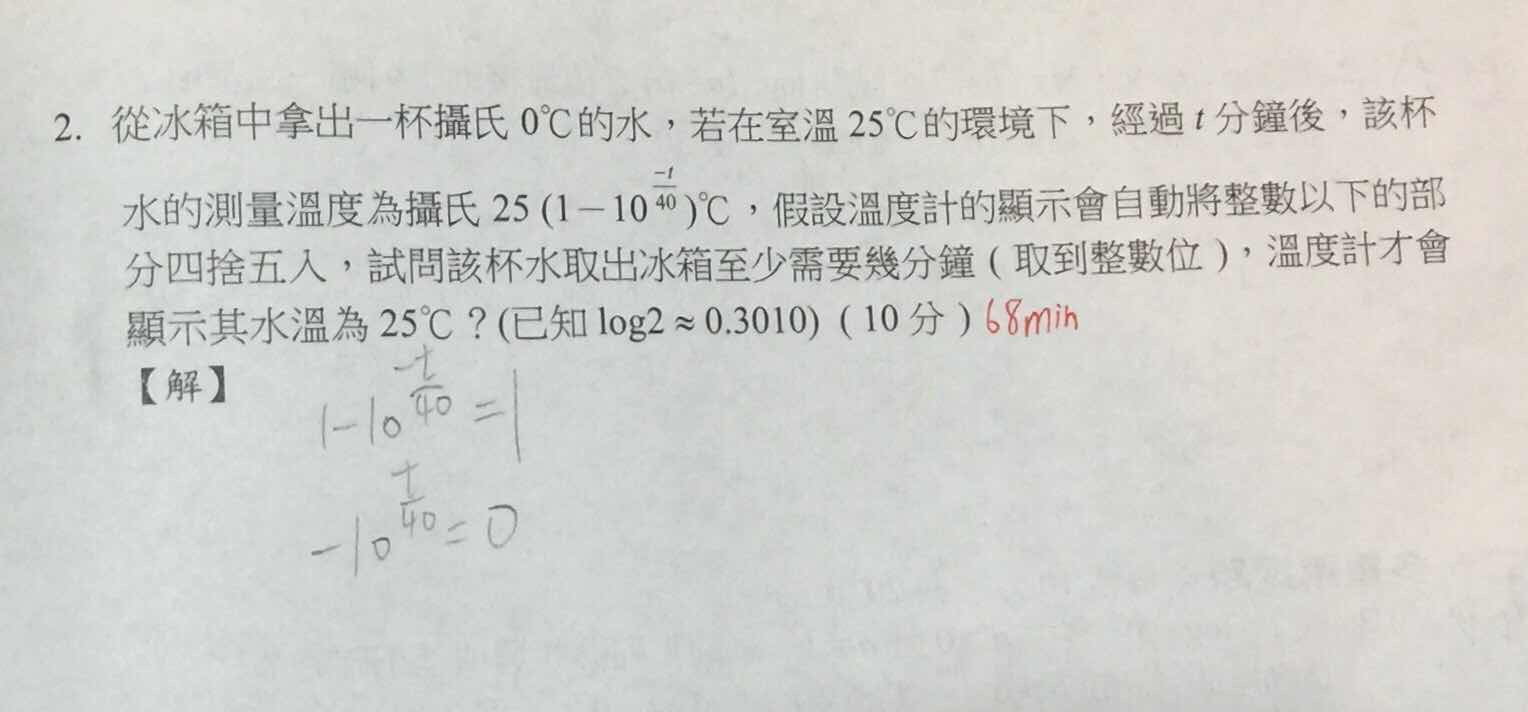 2. 從冰箱中拿出一杯攝氏 0℃的水，若在室溫 25℃的環境下，經過 t 分鐘後，該杯
水的測量溫度為攝氏 25 (1－10^{\frac{-t}{40}})℃，假設溫度計的顯示會自動將整數以下的部
分四捨五入，試問該杯水取出冰箱至少需要幾分鐘 ( 取到整數位 )，溫度計才會
顯示其水溫為 25℃？(已知 log2 ≈ 0.3010) ( 10 分 ) 68min
【解】
1-10^{\frac{-t}{40}} = 1
-10^{\frac{t}{40}} = 0